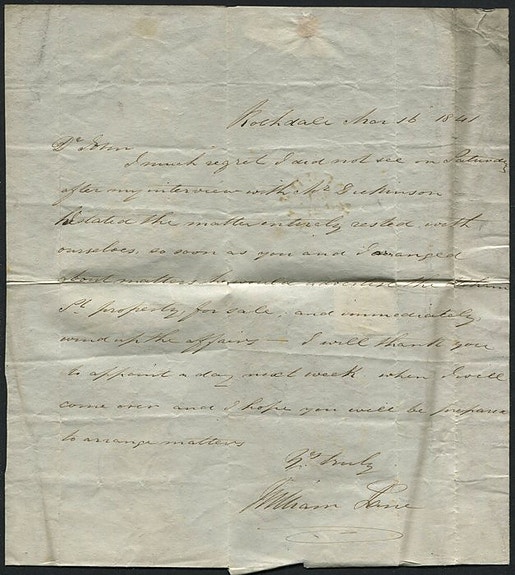 Rochdale Mar 16 1841
Dr John
I much regret I did not see on Saturday
after my interview with Mr Dickinson
He stated the matter entirely rested with
ourselves, so soon as you and I arranged
about matters he would advertise the
St. property for sale, and immediately
wind up the affairs — I will thank you
to appoint a day next week when I will
come over and I hope you will be prepared
to arrange matters
Yrs truly
William Lane